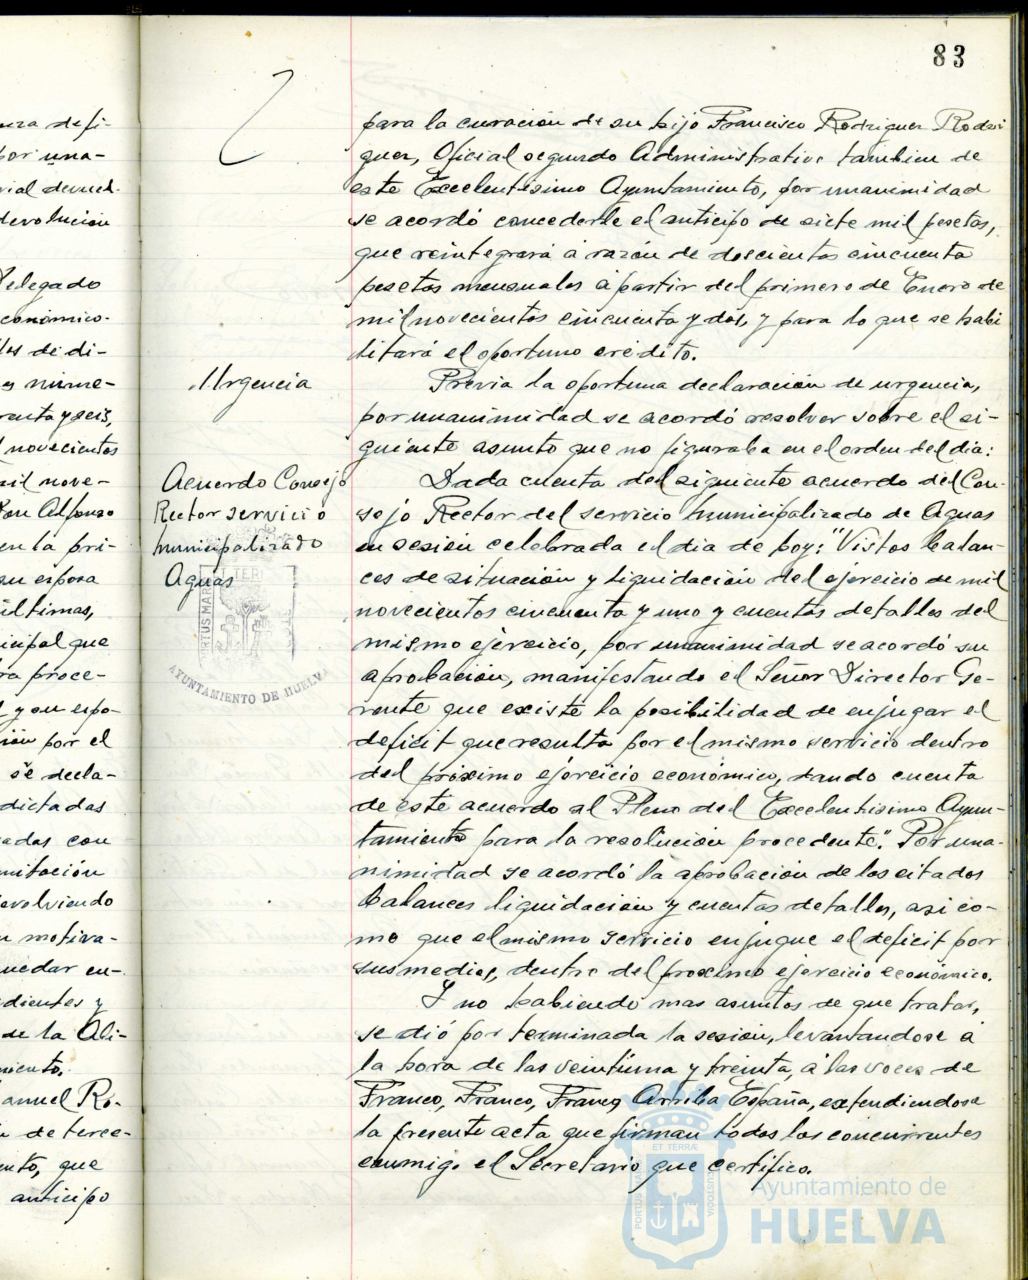 83
para la curación de su hijo Francisco Rodriguez Rodri
guez, Oficial segundo Administrativo tambien de
este Excelentisimo Ayuntamiento, por unanimidad
se acordó concederle el anticipo de siete mil pesetas,
que reintegrará á razón de doscientas cincuenta
pesetas mensuales á partir del primero de Enero de
mil novecientos cincuenta y dos, y para lo que se habi
litará el oportuno crédito.
Urgencia
Previa la oportuna declaración de urgencia,
por unanimidad se acordó resolver sobre el si-
guiente asunto que no figuraba en el orden del dia:
Acuerdo Consejo
Rector servicio
municipalizado
Aguas
Dada cuenta del siguiente acuerdo del Con-
sejo Rector del servicio municipalizado de Aguas
en sesión celebrada el dia de hoy: "Vistos balan-
ces de situación y liquidación del ejercicio de mil
novecientos cincuenta y uno y cuentas detalles del
mismo ejercicio, por unanimidad se acordó su
aprobación, manifestando el Señor Director Ge-
rente que existe la posibilidad de enjugar el
deficit que resulta por el mismo servicio dentro
del próximo ejercicio económico, dando cuenta
de este acuerdo al Pleno del Excelentisimo Ayun-
tamiento para la resolución procedente". Por una-
nimidad se acordó la aprobación de los citados
balances liquidación y cuentas detalles, asi co-
mo que el mismo servicio enjugue el deficit por
sus medios, dentro del proximo ejercicio económico.
Y no habiendo mas asuntos de que tratar,
se dió por terminada la sesión, levantandose á
la hora de las veintiuna y treinta, á las voces de
Franco, Franco, Franco, Arriba España, extendiendose
la presente acta que firman todos los concurrentes
conmigo el Secretario que certifico.
AYUNTAMIENTO DE HUELVA
Ayuntamiento de
HUELVA
nza defi-
por una-
devolución
Delegado
conómico-
de di-
nime-
novecientos
mil nove-
Don Alfonso
en la pri-
su esposa
últimas,
nicipal que
proce-
y su espo-
por el
se decla-
dictadas
con
mitación
devolviendo
motiva-
quedar en-
dientes y
de la Ali-
miento.
anuel Ro-
de terce-
ento, que
anticipo